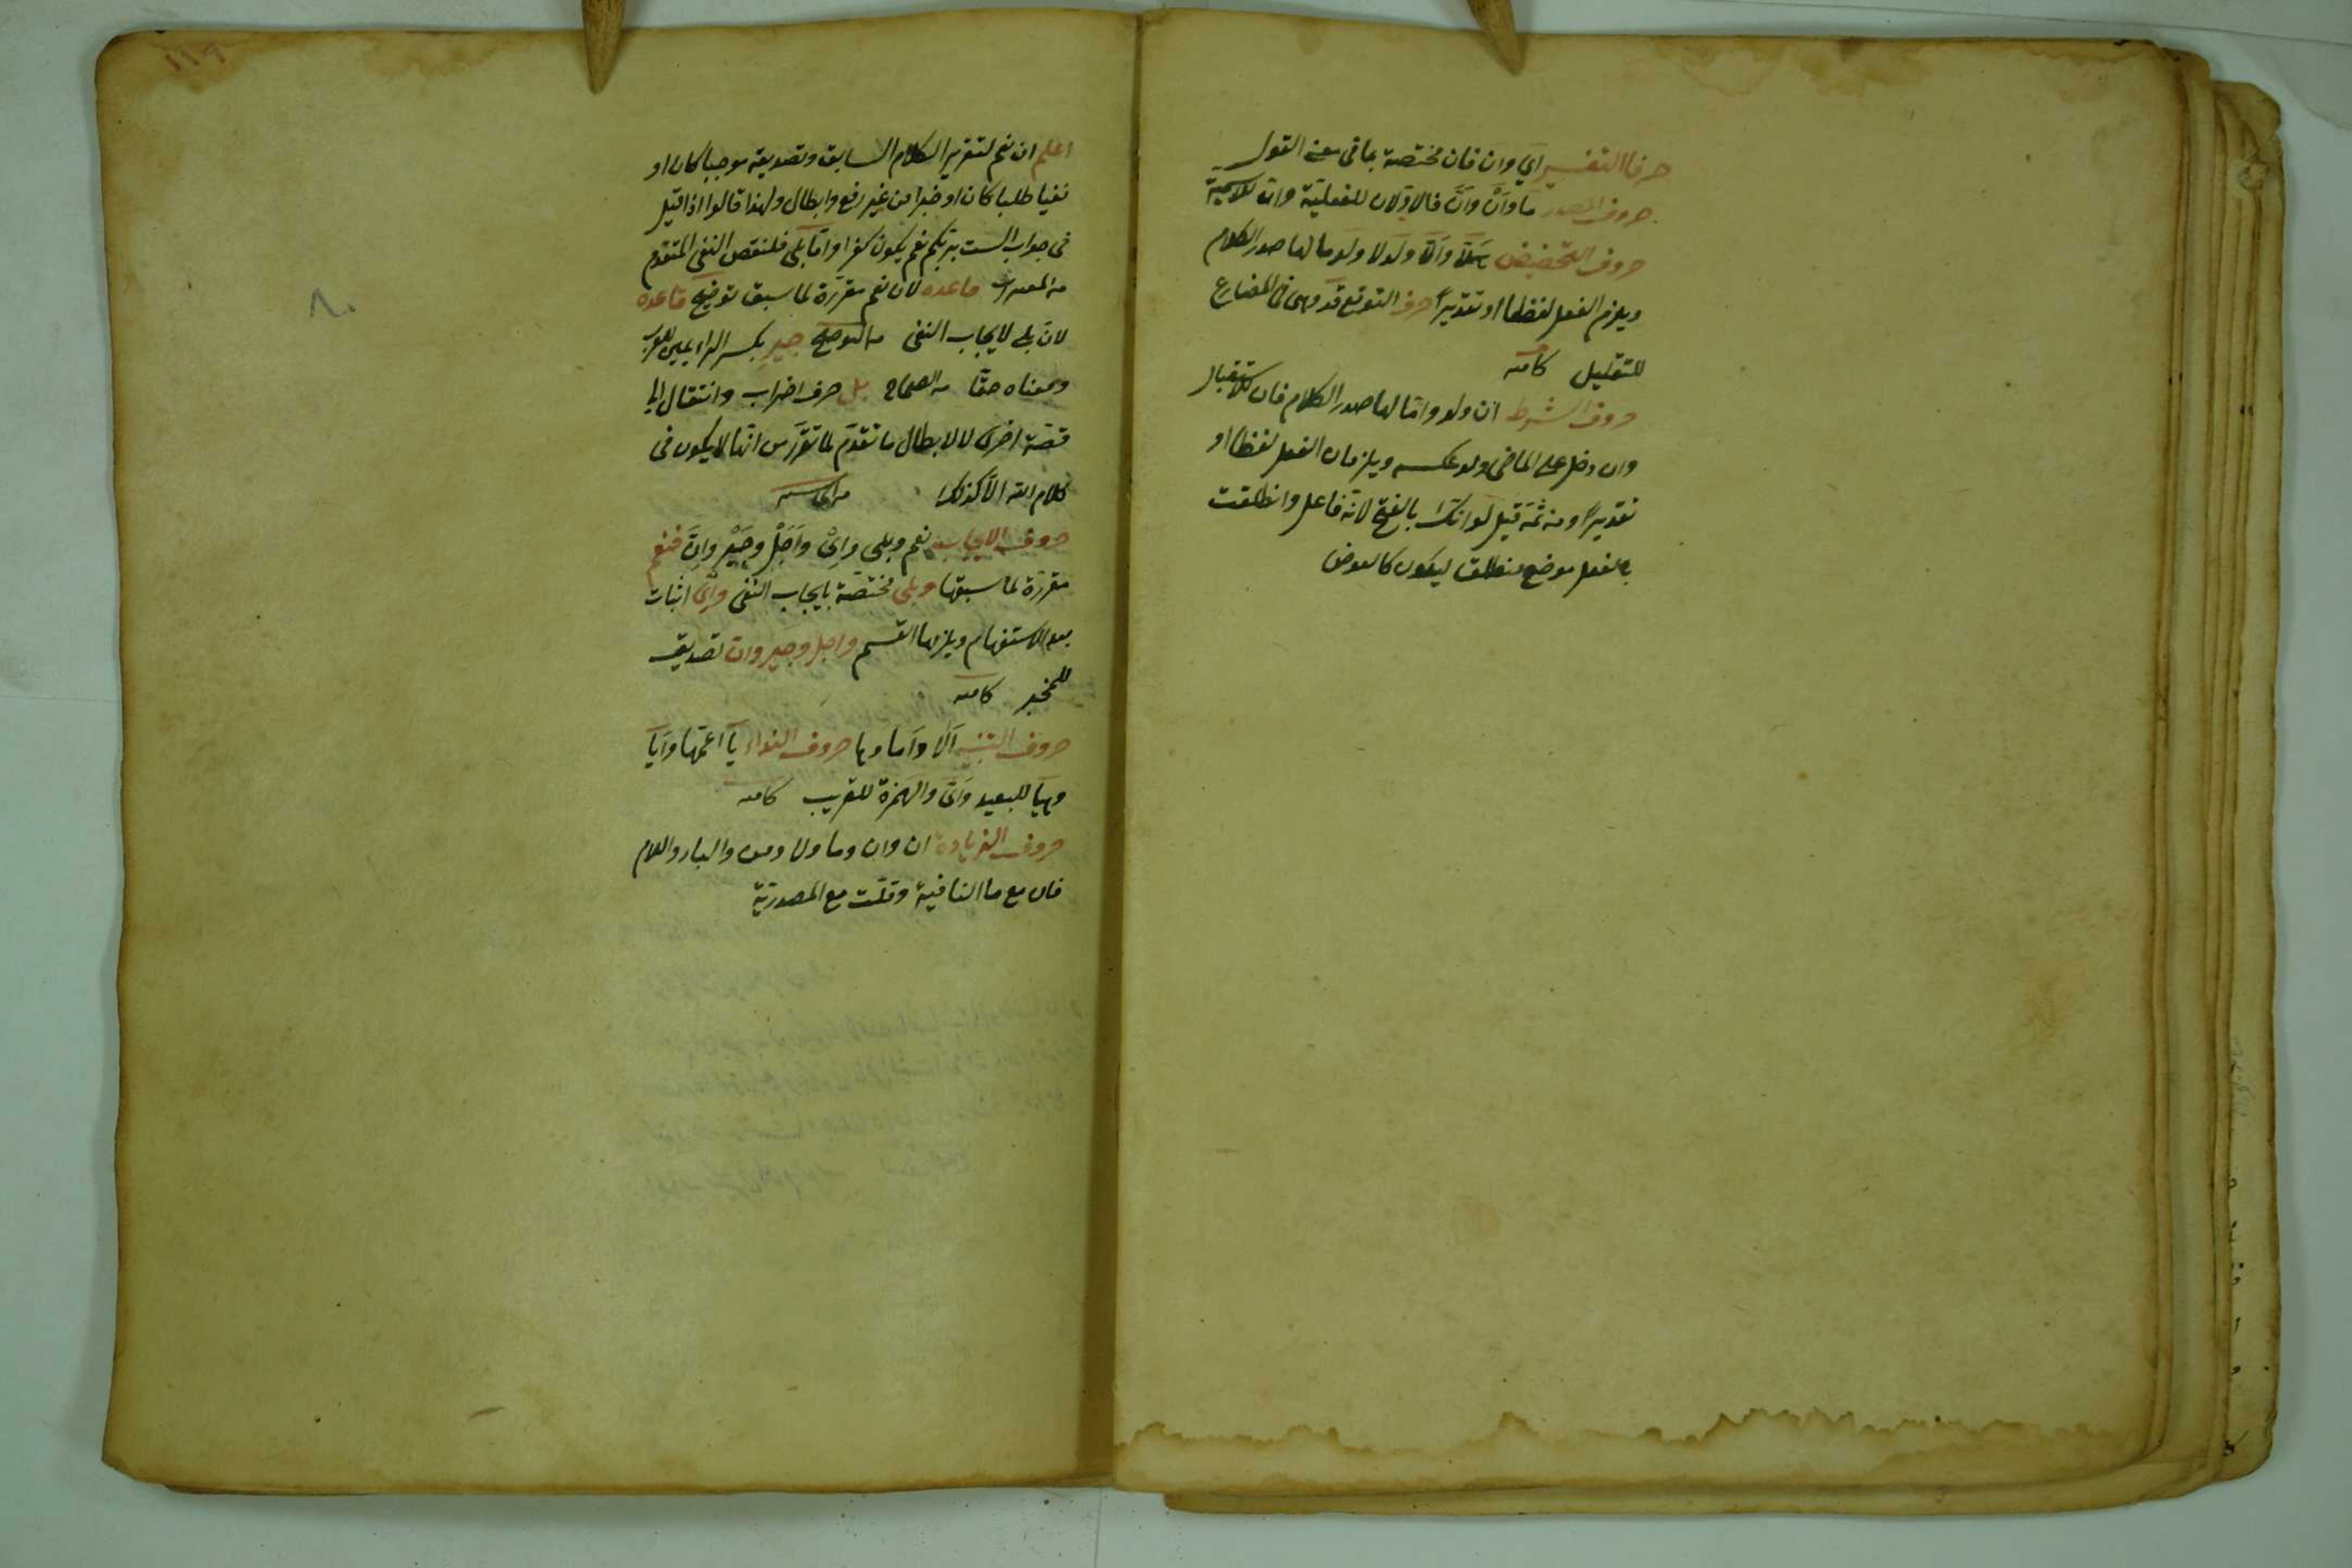 حرفا التفسير اي وان فان مختصة بما في معنى القول
حروف المصدر ما وأن وأنّ فالاولان للفعلية وانّ للاسمية
حروف التحضيض هلّا وألّا ولولا ولوما لها صدر الكلام
ويلزم الفعل لفظا او تقديرًا حرف التوقع قد وهى في المضارع
للتقليل كافيه
حروف الشرط ان ولو وامّا لها صدر الكلام فان للاستقبال
وان دخل على الماضى ولو عكسه ويلزمان الفعل لفظا او
تقديرًا ومن ثمّة قيل لو انك بالفتح لانّه فاعل وانطلقت
بالفعل موضع منطلق ليكون كالعوض
١١٩
٨٠
اعلم ان نعم لتقرير الكلام السابق وتصديقه موجبا كان او
نفيا طلبا كان او خبرا من غير رفع وابطال ولهذا قالوا اذا قيل
في جواب الست بربكم نعم يكون كفرا وامّا بلى فلنقض النفى المتقدم
قاعده لان نعم مقرّرة لما سبق توضيح قاعده
لانّ بلى لايجاب النفى من التوضيح جير بكسر الراء يمين للعرب
ومعناه حقّا من الصحاح بل حرف اضراب وانتقال الى
قصّة اخرى لا لابطال ما تقدّم لما تقرّر من انّها لا يكون فى
كلام الله الّا كذلك
حروف الايجاب نعم وبلى واِىْ واَجَلْ وجَيْرِ واِنَّ فنعم
مقرّرة لما سبقها وبلى مختصّة بايجاب النفى واِىْ اثبات
بعد الاستفهام ويلزمها القسم واجل وجير وان تصديق
للمخبر كافيه
حروف التنبيه اَلَا واَما وها حروف النداء يا اعمّها وأيا
وهيا للبعيد وأى والهمزة للقريب كافيه
حروف الزيادة ان وان وما ولا ومن والباء واللام
فان مع ما النافية وقلّت مع المصدريّة